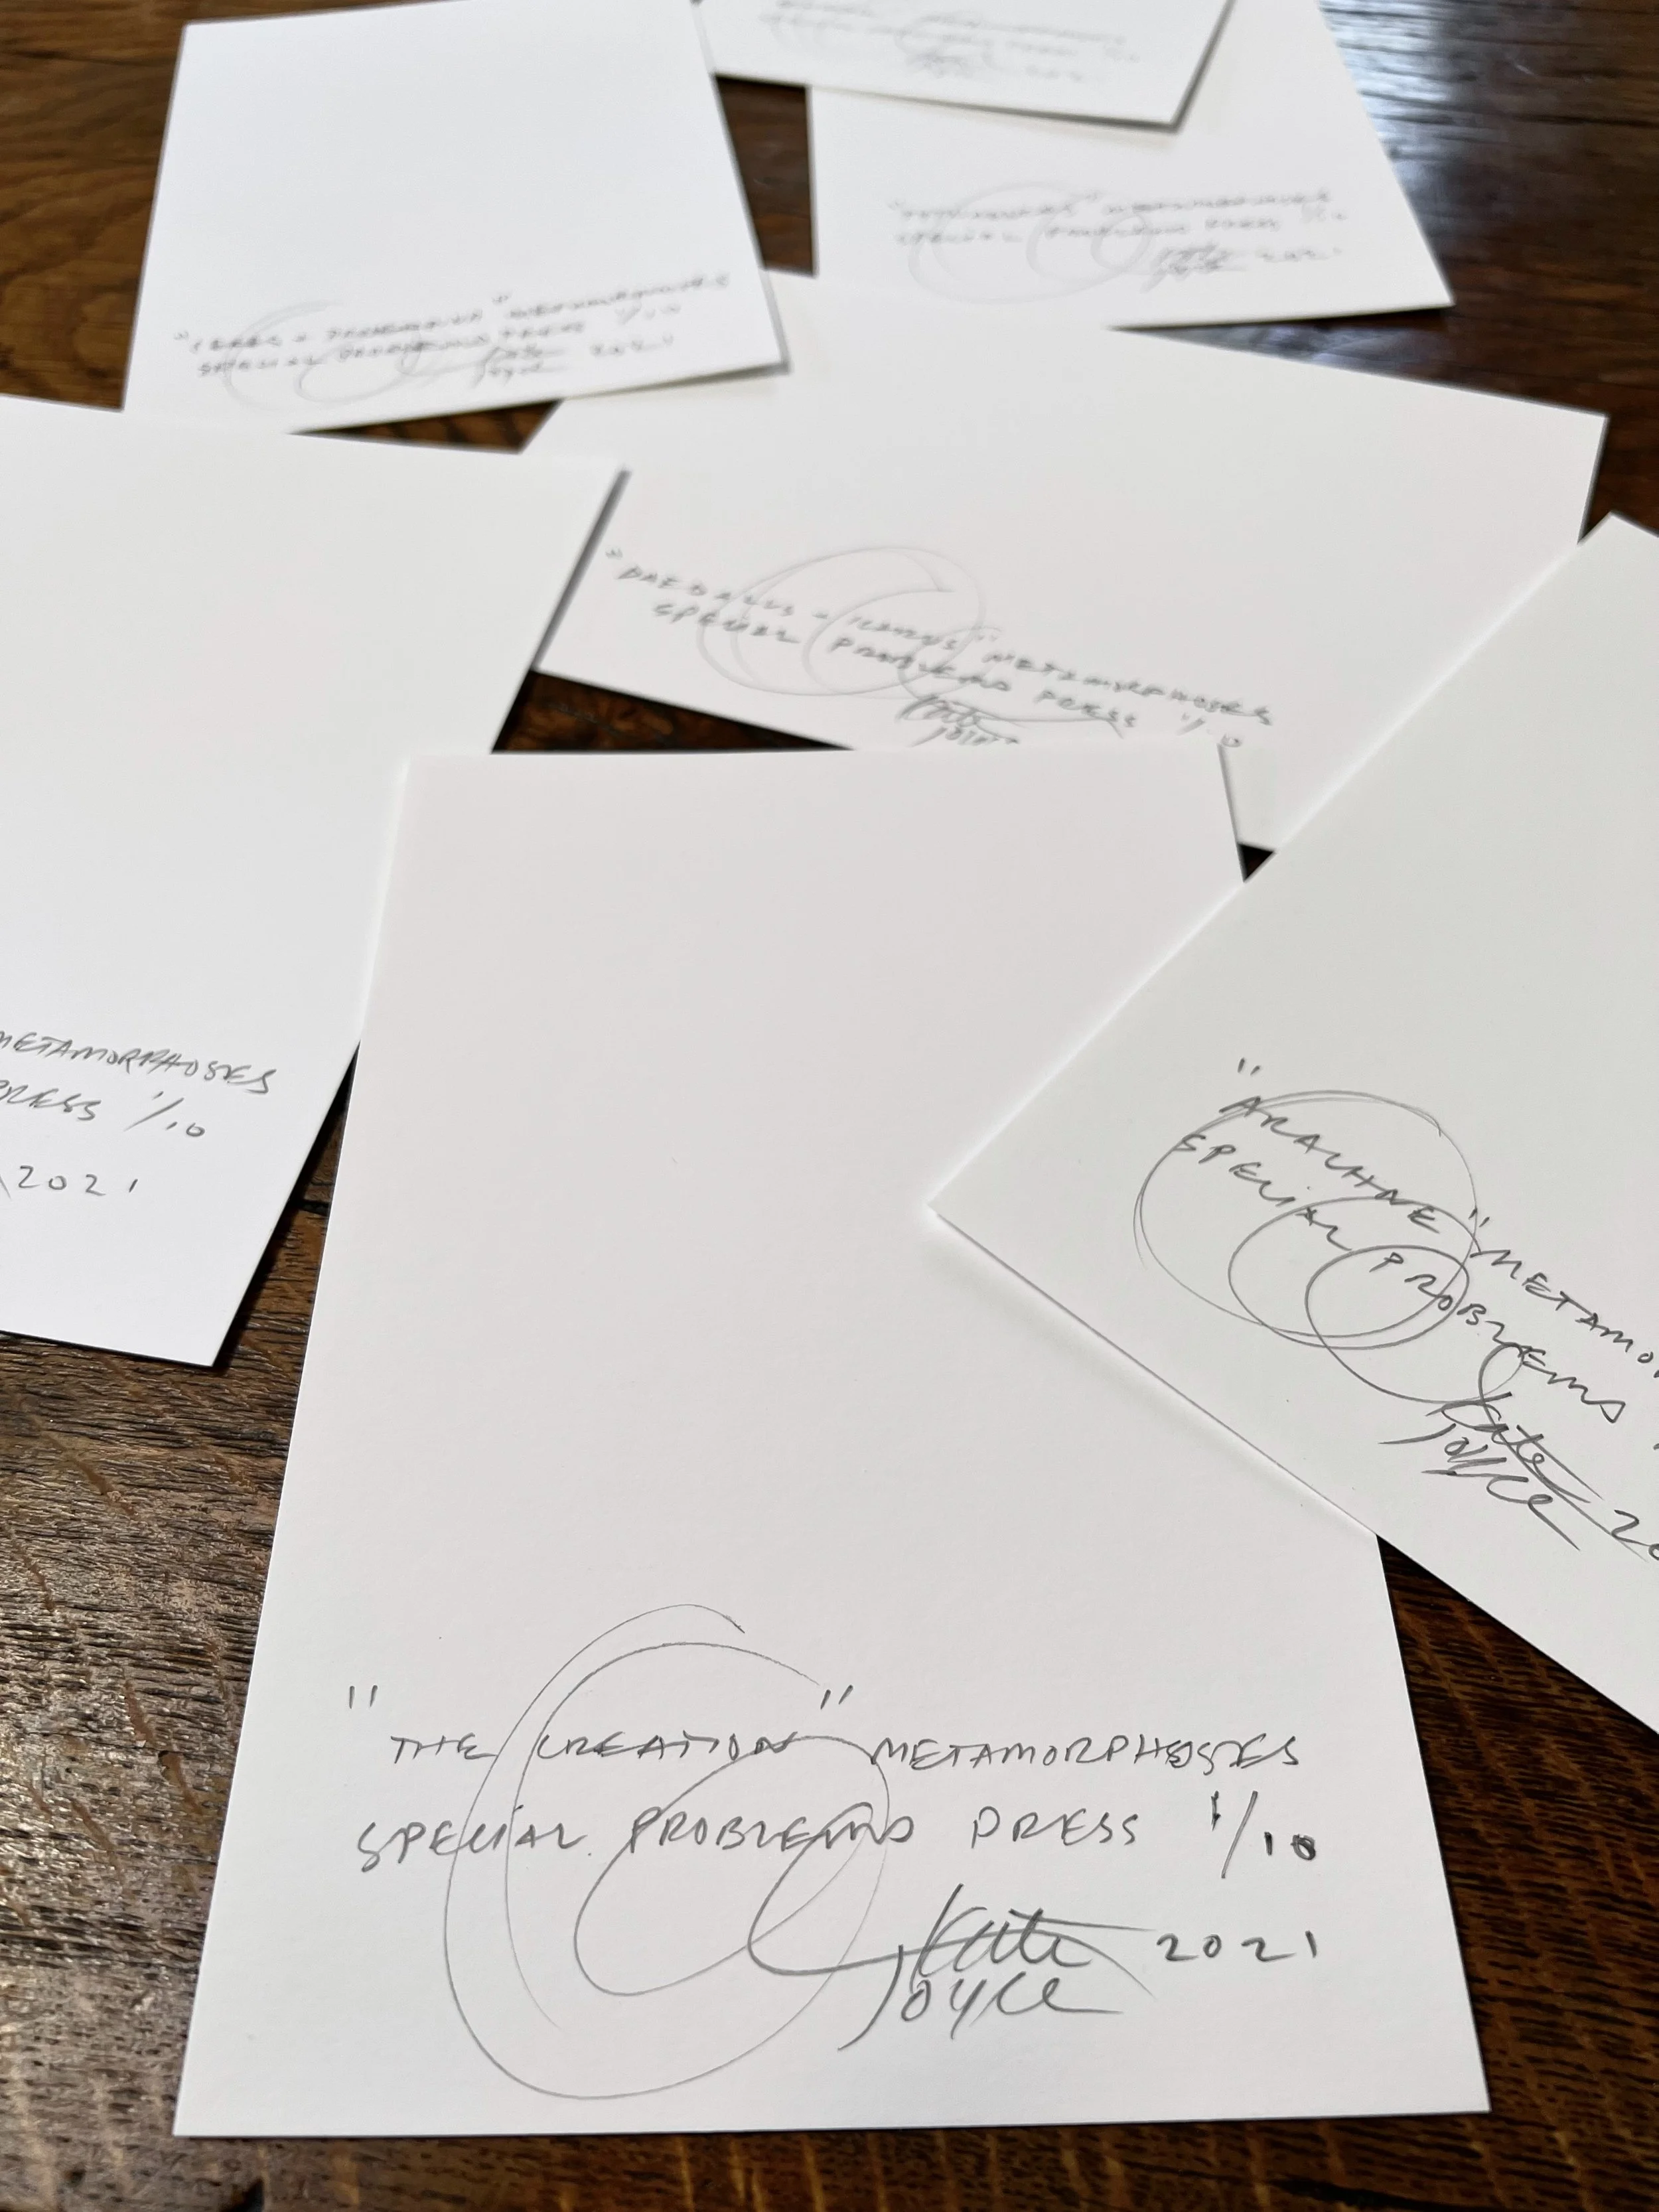 SPECIAL PROBLEMS PRESS
Kate
Joyce 2021
"CERES + PROSERPINA" METAMORPHOSES
SPECIAL PROBLEMS PRESS 1/10
Kate
Joyce 2021
"DAEDALUS + ICARUS" METAMORPHOSES
SPECIAL PROBLEMS PRESS 1/10
Kate
Joyce
METAMORPHOSES
PRESS 1/10
2021
"ARACHNE" METAMO
SPECIAL PROBLEMS
Kate
Joyce 20
"THE CREATION" METAMORPHOSES
SPECIAL PROBLEMS PRESS 1/10
Kate 2021
Joyce